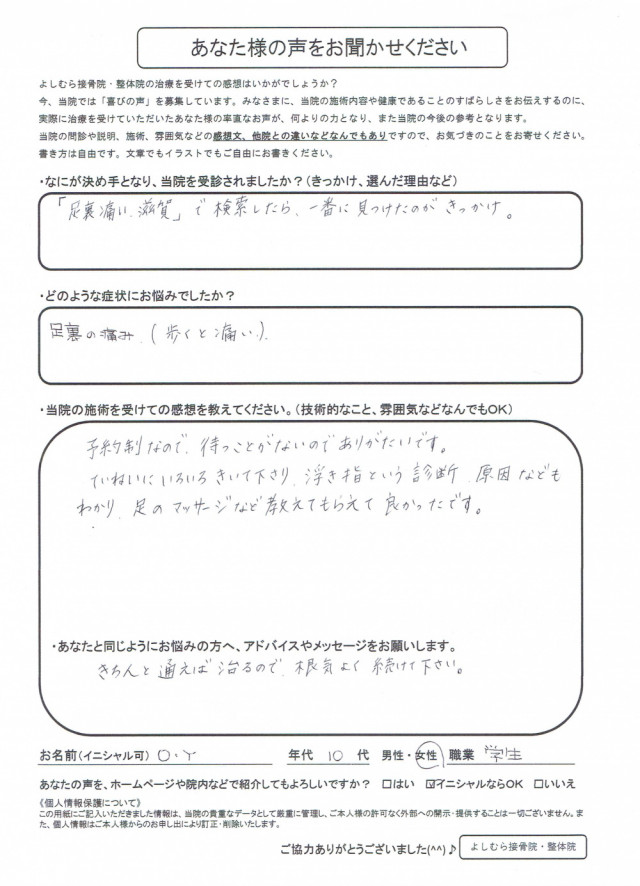 あなた様の声をお聞かせください
よしむら接骨院・整体院の治療を受けての感想はいかがでしょうか？
今、当院では「喜びの声」を募集しています。みなさまに、当院の施術内容や健康であることのすばらしさをお伝えするのに、
実際に治療を受けていただいたあなた様の率直なお声が、何よりの力となり、また当院の今後の参考となります。
当院の問診や説明、施術、雰囲気などの感想文、他院との違いなどなんでもありですので、お気づきのことをお寄せください。
書き方は自由です。文章でもイラストでもご自由にお書きください。
・なにが決め手となり、当院を受診されましたか？（きっかけ、選んだ理由など）
「足裏痛い、滋賀」で検索したら、一番に見つけたのがきっかけ。
・どのような症状にお悩みでしたか？
足裏の痛み、（歩くと痛い）、
・当院の施術を受けての感想を教えてください。（技術的なこと、雰囲気などなんでもOK）
予約制なので、待つことがないのでありがたいです。
ていねいにいろいろきいて下さり、浮き指という診断、原因なども
わかり、足のマッサージなど教えてもらえて良かったです。
・あなたと同じようにお悩みの方へ、アドバイスやメッセージをお願いします。
きちんと通えば治るので、根気よく続けて下さい。
お名前（イニシャル可） O・Y 年代 10 代 男性・女性 職業 学生
あなたの声を、ホームページや院内などで紹介してもよろしいですか？ □はい ☑イニシャルならOK □いいえ
《個人情報保護について》
この用紙にご記入いただきました情報は、当院の貴重なデータとして厳重に管理し、ご本人様の許可なく外部への開示・提供することは一切ございません。ま
た、個人情報はご本人様からのお申し出により訂正・削除いたします。
ご協力ありがとうございました(^^)♪ よしむら接骨院・整体院